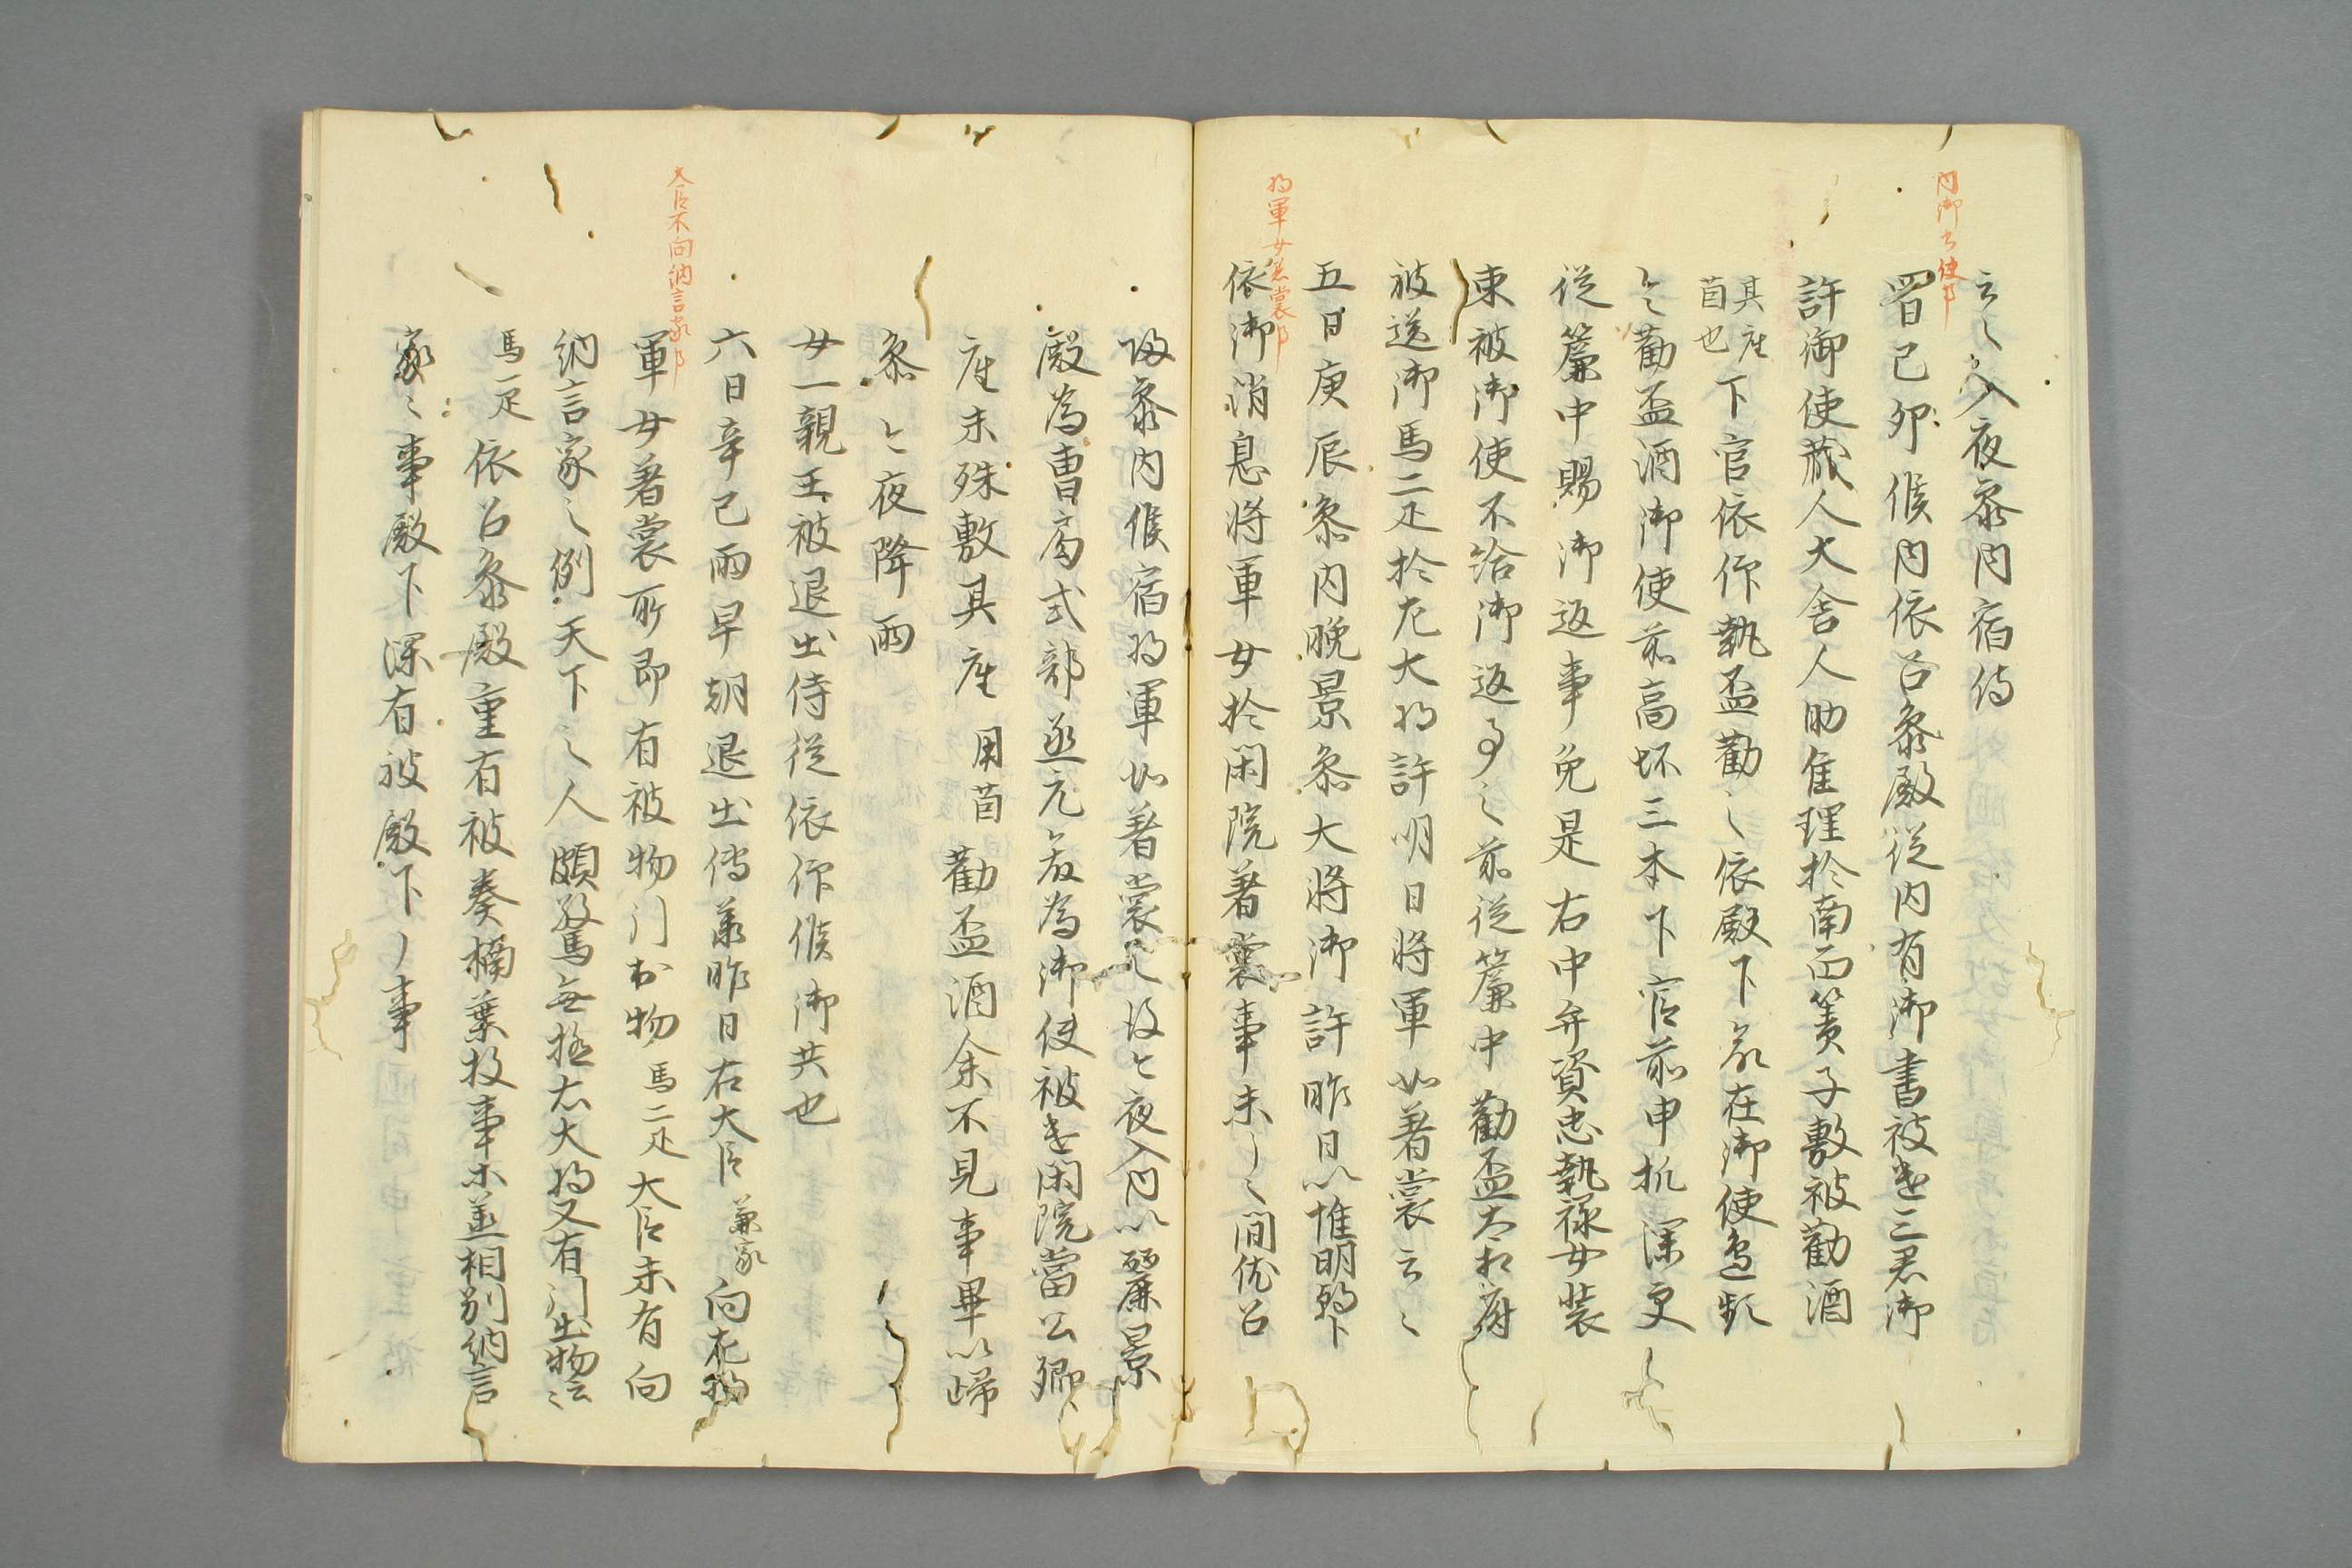 内御書使事
云々入夜参内宿侍
四日己卯候内依召参殿従内有御書被遣三君御
許御使蔵人大舎人助隹理於南面簀子敷被勧酒
其座茵也下官依仰執盃勧之依殿下命在御使
々勧盃酒御使前高坏三本下官前申机深更
従簾中賜御返事免是右中弁資忠執禄女装
束被御使不給御返事之前従簾中勧盃大相府
被送御馬二疋於左大将許明日将軍女着裳云々
五日庚辰参内晩景参大将御許昨日以惟明
将軍女着裳事
依御消息将軍女於閑院着裳事未了之間依召
参内候宿将軍女着裳之後今夜入内以麗景
殿為曹局式部丞元為御使被遣閑院当公卿
座末殊敷其座用茵勧盃酒余不見事畢以帰
参今夜降雨
女一親王被退出侍従依仰候御共也
六日辛巳雨早朝退出伝承昨日右大臣兼家向左将
大臣不向納言家事
軍女着裳所即有被物門出物馬二疋大臣未有向
納言家之例天下之人頗驚無極左大将又有門出物云々
馬一疋依召参殿重有被奏構葉投事等並相別納言
家々事殿下深有被殿下了事